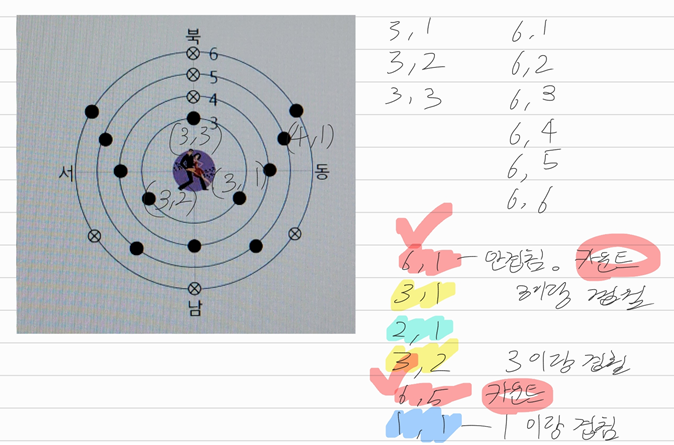 북
6
5
4
3
(3,3)
(4,1)
서
동
(3,2)
(3, 1)
남
3, 1
6, 1
3, 2
6, 2
3, 3
6, 3
6, 4
6, 5
6, 6
6, 1 — 안겹침. 카운트
3, 1 3이랑 겹침
2, 1
3, 2 3이랑 겹침
6, 5 카운트
1, 1 — 1이랑 겹침